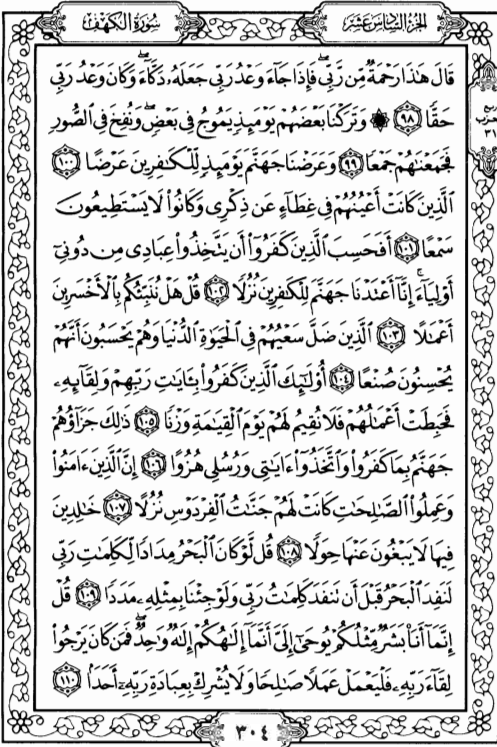 سُورَةُ الكَهْفِ
الجُزْءُ السَّادِسَ عَشَرَ
رُبْع
حزب
٣١
قَالَ هَٰذَا رَحْمَةٌ مِّن رَّبِّي ۖ فَإِذَا جَاءَ وَعْدُ رَبِّي جَعَلَهُۥ دَكَّاءَ ۖ وَكَانَ وَعْدُ رَبِّي
حَقًّا ٩٨ ۞ وَتَرَكْنَا بَعْضَهُمْ يَوْمَئِذٍ يَمُوجُ فِي بَعْضٍ ۖ وَنُفِخَ فِي الصُّورِ
فَجَمَعْنَٰهُمْ جَمْعًا ٩٩ وَعَرَضْنَا جَهَنَّمَ يَوْمَئِذٍ لِّلْكَٰفِرِينَ عَرْضًا ١٠٠
الَّذِينَ كَانَتْ أَعْيُنُهُمْ فِي غِطَاءٍ عَن ذِكْرِي وَكَانُوا۟ لَا يَسْتَطِيعُونَ
سَمْعًا ١٠١ أَفَحَسِبَ الَّذِينَ كَفَرُوٓا۟ أَن يَتَّخِذُوا۟ عِبَادِي مِن دُونِيٓ
أَوْلِيَاءَ ۚ إِنَّآ أَعْتَدْنَا جَهَنَّمَ لِلْكَٰفِرِينَ نُزُلًا ١٠٢ قُلْ هَلْ نُنَبِّئُكُم بِالْأَخْسَرِينَ
أَعْمَٰلًا ١٠٣ الَّذِينَ ضَلَّ سَعْيُهُمْ فِي الْحَيَوٰةِ الدُّنْيَا وَهُمْ يَحْسَبُونَ أَنَّهُمْ
يُحْسِنُونَ صُنْعًا ١٠٤ أُو۟لَٰٓئِكَ الَّذِينَ كَفَرُوا۟ بِـَٔايَٰتِ رَبِّهِمْ وَلِقَآئِهِۦ
فَحَبِطَتْ أَعْمَٰلُهُمْ فَلَا نُقِيمُ لَهُمْ يَوْمَ الْقِيَٰمَةِ وَزْنًا ١٠٥ ذَٰلِكَ جَزَآؤُهُمْ
جَهَنَّمُ بِمَا كَفَرُوا۟ وَاتَّخَذُوٓا۟ ءَايَٰتِي وَرُسُلِي هُزُوًا ١٠٦ إِنَّ الَّذِينَ ءَامَنُوا۟
وَعَمِلُوا۟ الصَّٰلِحَٰتِ كَانَتْ لَهُمْ جَنَّٰتُ الْفِرْدَوْسِ نُزُلًا ١٠٧ خَٰلِدِينَ
فِيهَا لَا يَبْغُونَ عَنْهَا حِوَلًا ١٠٨ قُل لَّوْ كَانَ الْبَحْرُ مِدَادًا لِّكَلِمَٰتِ رَبِّي
لَنَفِدَ الْبَحْرُ قَبْلَ أَن تَنفَدَ كَلِمَٰتُ رَبِّي وَلَوْ جِئْنَا بِمِثْلِهِۦ مَدَدًا ١٠٩ قُلْ
إِنَّمَآ أَنَا۠ بَشَرٌ مِّثْلُكُمْ يُوحَىٰٓ إِلَيَّ أَنَّمَآ إِلَٰهُكُمْ إِلَٰهٌ وَٰحِدٌ ۖ فَمَن كَانَ يَرْجُوا۟
لِقَآءَ رَبِّهِۦ فَلْيَعْمَلْ عَمَلًا صَٰلِحًا وَلَا يُشْرِكْ بِعِبَادَةِ رَبِّهِۦٓ أَحَدًۢا ١١٠
٣٠٤